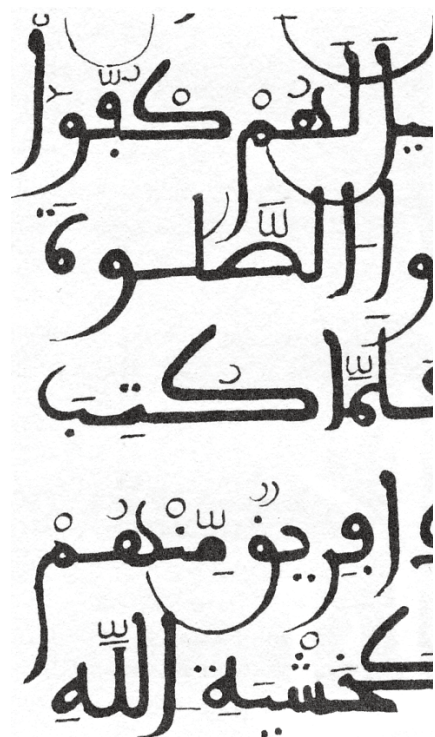 يل لهم كُفُّوا
وا الصَّلوة
فَلَمَّا كُتِبَ
ا فَرِيقٌ مِّنْهُمْ
كَخَشْيَةِ اللَّهِ